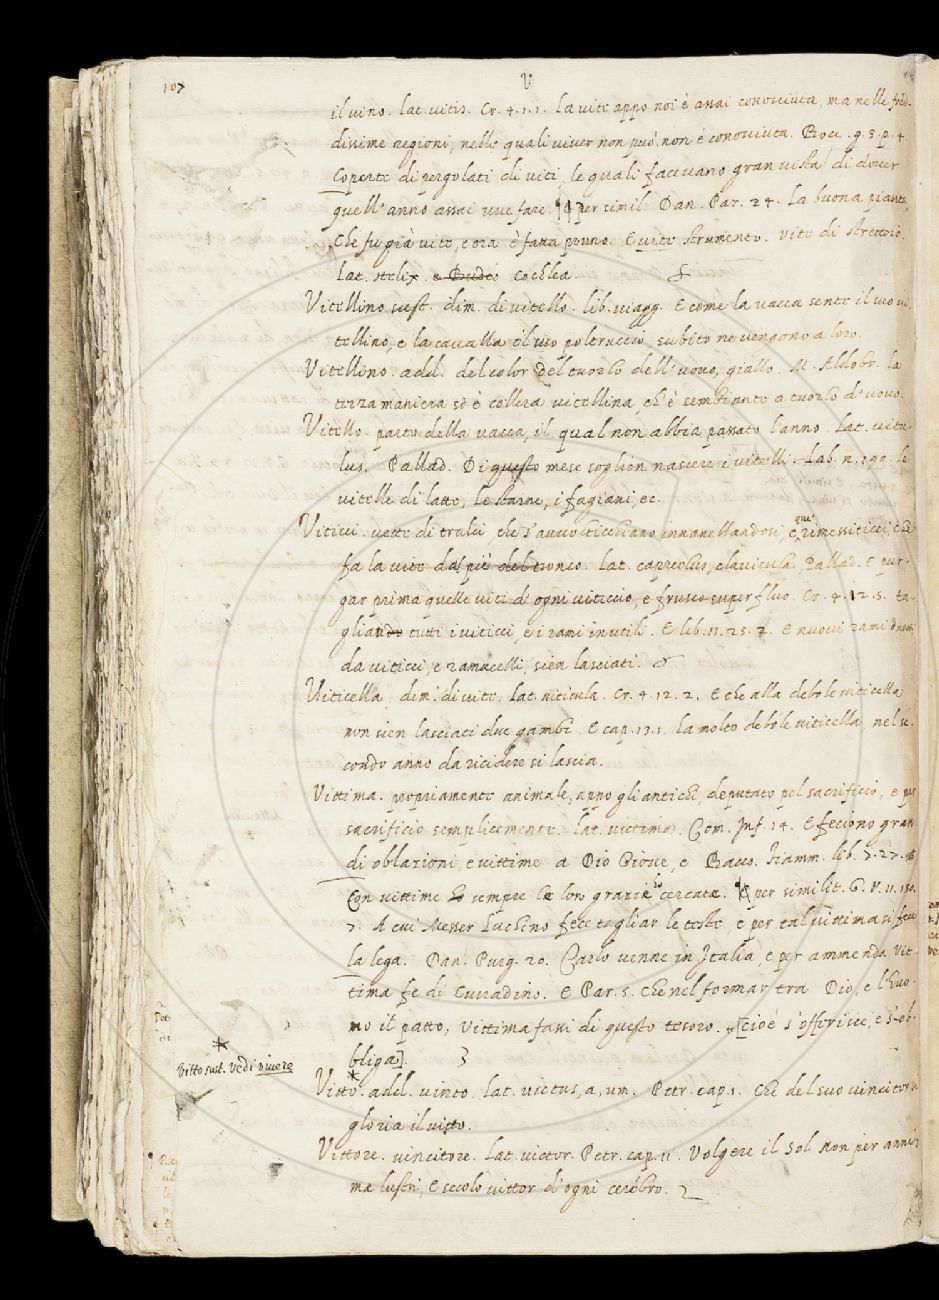 107
V
il vino. lat. vitis. Cr. 4.1.1. la vite appo noi è assai conosciuta, ma nelle fred-
dissime regioni, nelle quali viver non può, non è conosciuta. Bocc. g.3.p.4.
Coperte di pergolati di viti, le quali facevano gran vista di dover
quell'anno assai uve fare. ¶ per simil. Dan. Par. 24. La buona pianta,
Che fu già vite, e ora è fatta pruno. E vite strumento. vite di strettoio,
lat. helix e Budeo cochlea
Vitellino sust. dim. di vitello. lib. viagg. E come la vacca sente il suo vi-
tellino, e la cavalla il suo poltruccio, subito ne vengono a loro.
Vitellino. add. del color del tuorlo dell'uovo, giallo. M. Aldobr. la
terza maniera sè è collera vitellina, ch'è sembiante a tuorlo d'uovo.
Vitello. parto della vacca, il qual non abbia passato l'anno. Lat. vitu-
lus. Pallad. Di questo mese soglion nascere i vitelli. Lab. n. 199. le
vitelle di latte, le starne, i fagiani, ec.
Viticci. vette di tralci, che s'avviticchiano innanellandosi, e rimessiticci, che
fa la vite dal piè del tronco. Lat. capreolus, clavicula. Pallad. E pur-
gar prima quelle viti d'ogni viticcio, e frusco superfluo. Cr. 4.12.5. ta-
gliando tutti i viticci, e i rami inutili. E lib. 11.25.2. E nuovi rami
da viticci, e ramucelli, sien lasciati.
Viticella. dim. di vite. Lat. viticula. Cr. 4.12.2. E che alla debole viticella
non sien lasciati due gambi. E cap. 13.1. la molto debole viticella, nel se-
condo anno da ricidere si lascia.
Vittima. propriamente animale, appo gli antichi, deputato pel sacrificio, e per
sacrificio semplicemente. lat. victima. Com. Inf. 14. E feciono gran-
di oblazioni e vittime a Dio Giove, e Bacco. Fiamm. lib. 7.27.
Con vittime ho sempre le loro grazie cercate. ¶ per similit. G. V. 11.130.
7. A cui Messer Luchino fece tagliar le teste, e per tal vittima si fece
la lega. Dan. Purg. 20. Carlo venne in Italia, e per ammenda Vit-
tima fe di Curradino. E Par. 5. Che nel fermar tra Dio, e l'huo-
mo il patto, Vittima fassi di questo tesoro. [cioè s'offerisce, e s'ob-
bliga].
* Vitto sust. vedi vivere
Vitto. add. vinto. lat. victus, a, um. Petr. cap. 1. Che del suo vincitor
gloria il vitto.
Vittore. vincitore. Lat. victor. Petr. cap. 11. Volgere il Sol non per anni,
ma lustri, E secolo vittor d'ogni cerebro.